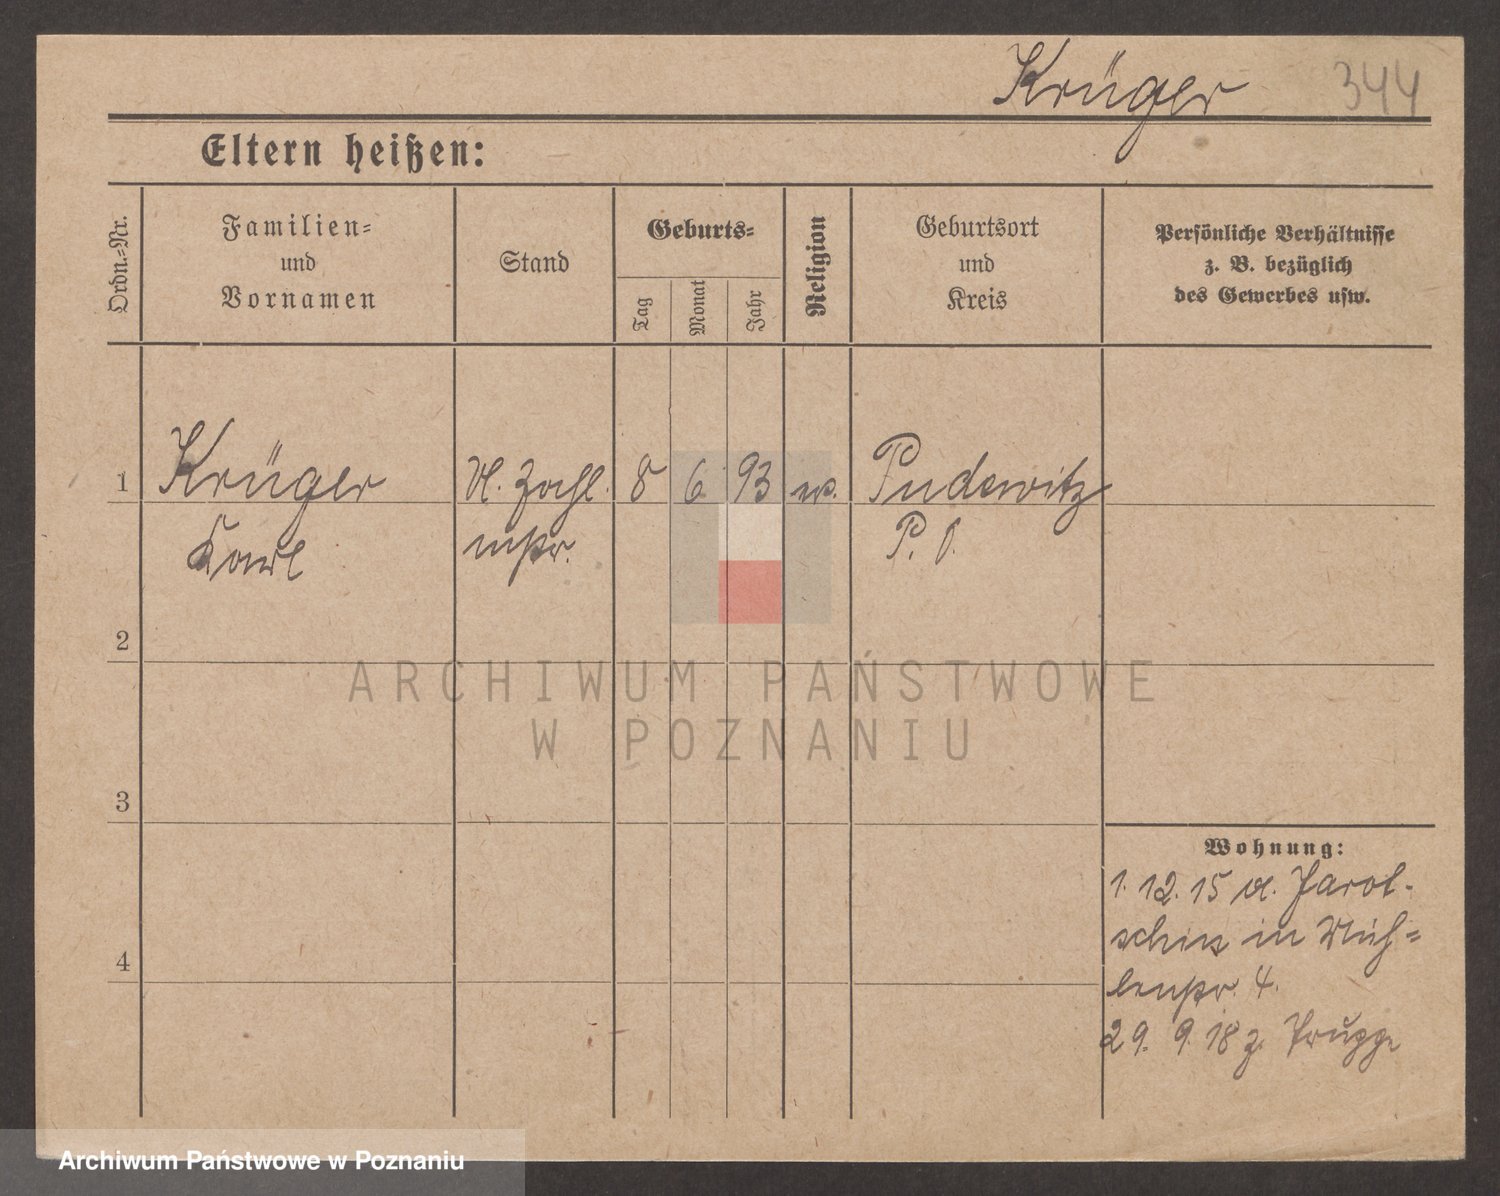 Krüger 344
Eltern heißen:
Ordn.=Nr.
Familien=
und
Vornamen
Stand
Geburts=
Tag
Monat
Jahr
Religion
Geburtsort
und
Kreis
Persönliche Verhältnisse
z. B. bezüglich
des Gewerbes usw.
1 Krüger Zahl. 8 6 93 Pudewitz
Karl mstr. P. O.
2
3
4
Wohnung:
1. 12. 15 a. Jarot-
schin in Müh=
lenstr. 4.
29. 9. 18 z. Truppe
ARCHIWUM PAŃSTWOWE
W POZNANIU
Archiwum Państwowe w Poznaniu